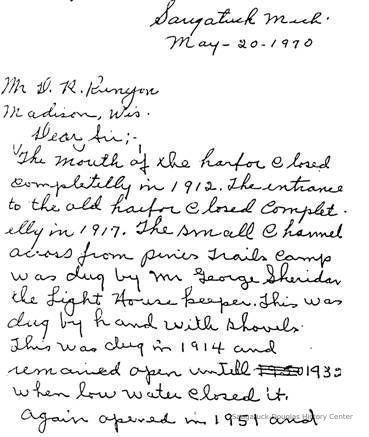 Saugatuck Mich.
May-20-1970
Mr D. R. Runyon
Madison, Wis.
Dear Sir;-
The mouth of the harfor closed
completelly in 1912. The entrance
to the old harfor closed complet-
elly in 1917. The small channel
across from pines Trails Camp
was dug by Mr George Sheridan
the Light House keeper. This was
dug by hand with shovels.
This was dug in 1914 and
remained open untill 1932
when low water closed it.
Again opened in 1951 and
Saugatuck-Douglas History Center